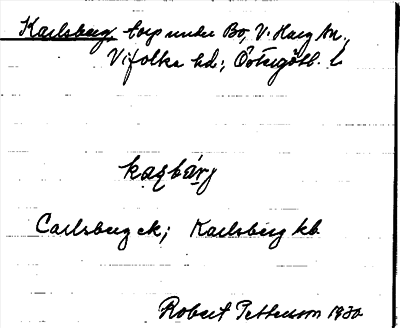 Karlsberg, torp under Bo, V. Harg sn.,
Vifolka hd; Östergötl. l.
Carlsberg ek; Karlsberg kb
Robert Pettersson 1930